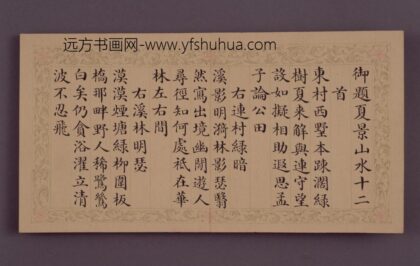 远方书画网-www.yfshuhua.com
御題夏景山水十二
首
東村西墅本踈濶綠
樹夏來解與連守望
設如擬相助遐思孟
子論公田
右連村綠暗
溪影明漪林影瑟翳
然寫出境幽閒遊人
尋徑知何處祇在華
林左右間
右溪林明瑟
漠漠煙塘綠柳圍板
橋耶畔野人稀鷺鷥
白矣仍貪浴濯立清
波不忍飛